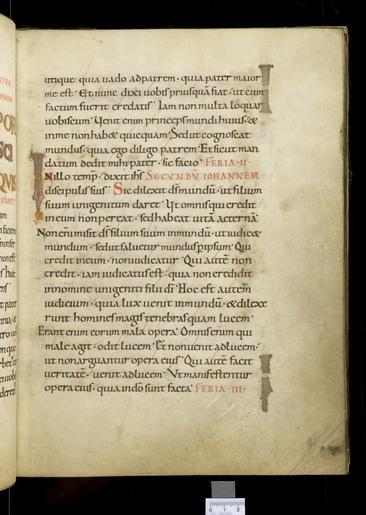 utique quia uado adpatrem · quia pater maior
me est · Et nunc dixi uobis priusquā fiat · ut cum
factum fuerit credatis · Iam non multa loquar
uobiscum · Uenit enim princeps mundi huius · &
in me non hab& quicquam · Sed ut cognoscat
mundus · quia ego diligo patrem · Et sicut man
datum dedit mihi pater · sic facio · FERIA · II ·
In illo temp̄ · dixit ih̄s SECUNDŪ IOHANNEM
discipulis suis · Sic dilexit d̄s mundū · ut filium
suum unigenitum daret · Ut omnis qui credit
in eum non pereat · sed habeat uitā aeternā ·
Non enim misit d̄s filium suum inmundū · ut iudic&
mundum · sed ut saluetur mundus p ipsum · Qui
credit in eum · non iudicatur · Qui autē non
credit · iam iudicatus est · quia non credidit
in nomine unigeniti filii dī · Hoc est autem
iudicium · quia lux uenit inmundū · & dilexe
runt homines magis tenebras quam lucem ·
Erant enim eorum mala opera · Omnis enim qui
male agit · odit lucem · Et non uenit adlucem ·
ut non arguantur opera eius · Qui autē facit
ueritatē · uenit adlucem · Ut manifestentur
opera eius · quia in dō sunt facta · FERIA · III ·